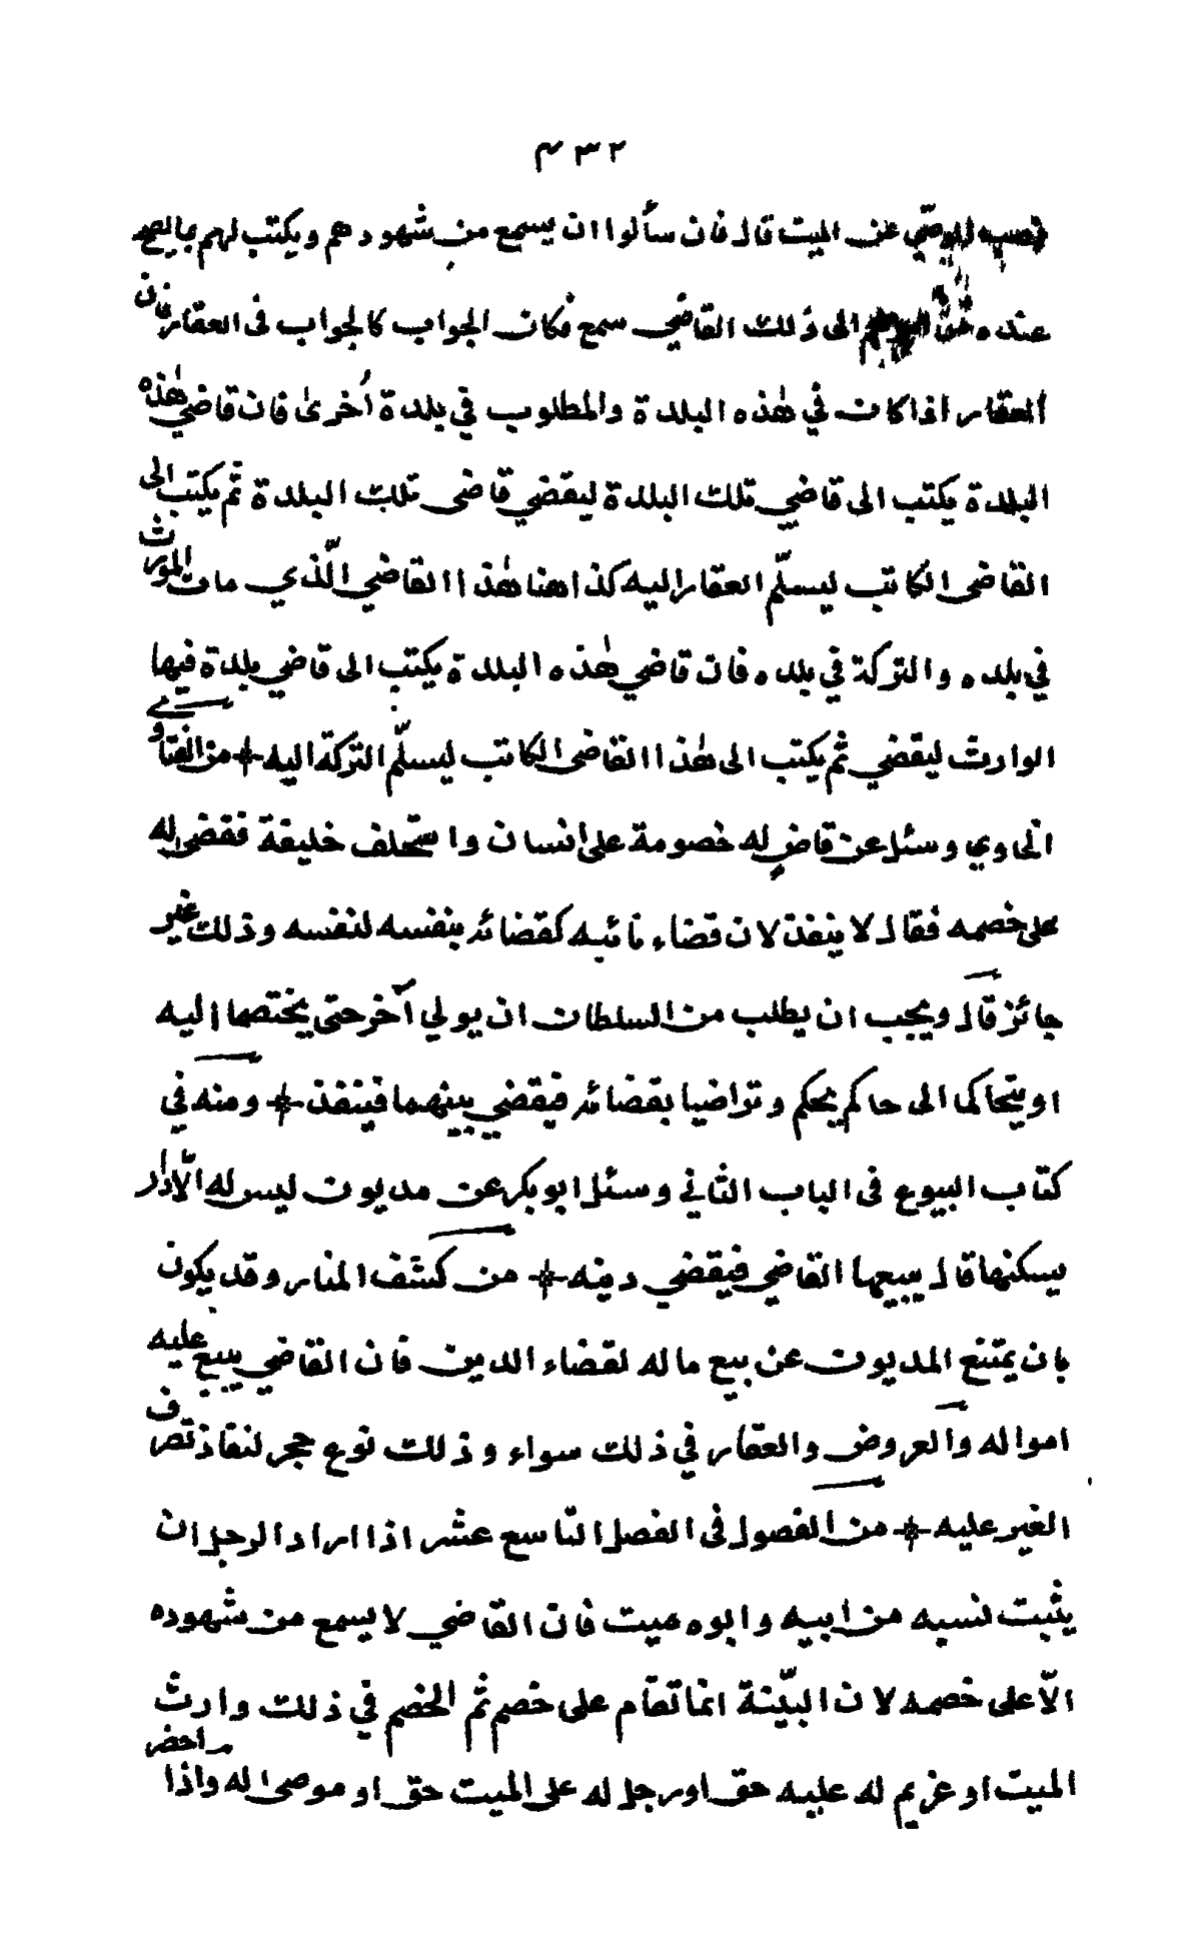 ٤٣٢
عن الميت قال فان سألوا ان يسمع من شهودهم ويكتب لهم بما يصح
عنده الى ذلك القاضي سمع فكان الجواب كالجواب فى العقار فان
العقار اذا كان في هٰذه البلدة والمطلوب في بلدة أخرىٰ فان قاضي هٰذه
البلدة يكتب الى قاضي تلك البلدة ليقضي قاضى تلك البلدة ثم يكتب الى
القاضى الكاتب ليسلّم العقار اليه كذا هنا هٰذا القاضي الّذي مات المورث
في بلده والتركة في بلده فان قاضي هٰذه البلدة يكتب الى قاضي بلدة فيها
الوارث ليقضي ثم يكتب الى هٰذا القاضى الكاتب ليسلّم التركة اليه + من الفتاوى
الحاوي وسئل عن قاضٍ له خصومة على انسان واستخلف خليفة فقضى له
على خصمه فقال لا ينفذ لان قضاء نائبه كقضائه بنفسه لنفسه وذلك غير
جائز قال ويجب ان يطلب من السلطان ان يولي آخر حتى يختصما اليه
او يتحاكما الى حاكم يحكم وتراضيا بقضائه فيقضي بينهما فينفذ + ومنه في
كتاب البيوع فى الباب الثاني وسئل ابو بكر عن مديون ليس له الّا دار
يسكنها قال يبيعها القاضي فيقضي دينه + من كشف المنار وقد يكون
بان يمتنع المديون عن بيع ماله لقضاء الدين فان القاضي يبيع عليه
امواله والعروض والعقار في ذلك سواء وذلك نوع حجر لنفاذ تصرف
الغير عليه + من الفصول فى الفصل التاسع عشر اذا اراد الرجل ان
يثبت نسبه من ابيه وابوه ميت فان القاضي لا يسمع من شهوده
الّا على خصمه لان البيّنة انما تقام على خصم ثم الخصم في ذلك وارث
الميت او غريم له عليه حق او رجل له على الميت حق او موصى له واذا احضر